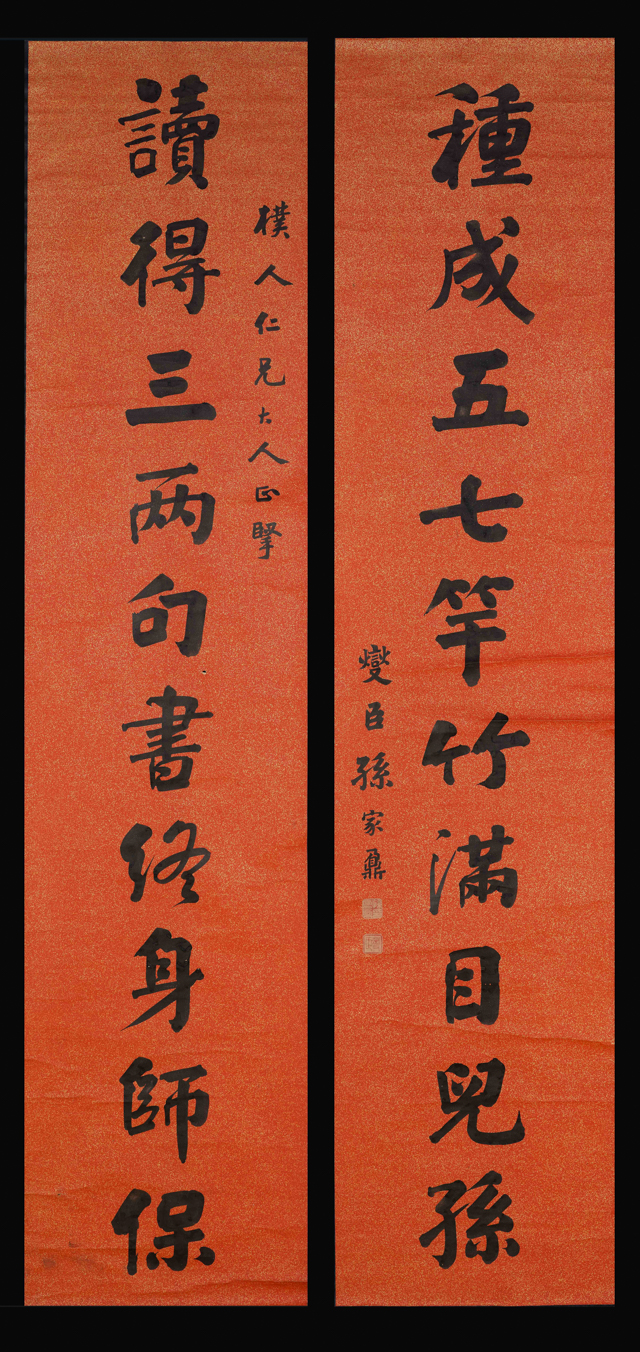 種成五七竿竹滿目兒孫
燮臣孫家鼐
樸人仁兄大人正掔
讀得三两句書終身師保